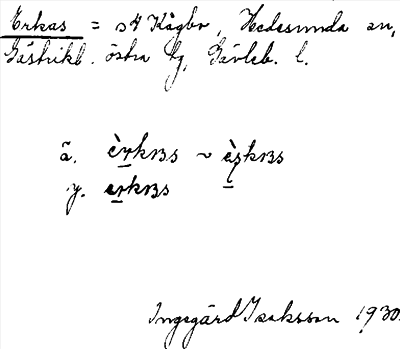 Erkas = Kågbo, Hedesunda sn,
Gästrikl. östra tg, Gävleb. l.
ä. èrkɐs ~ èskɐs
y. èrkɐs
Ingegärd Isaksson 1930.